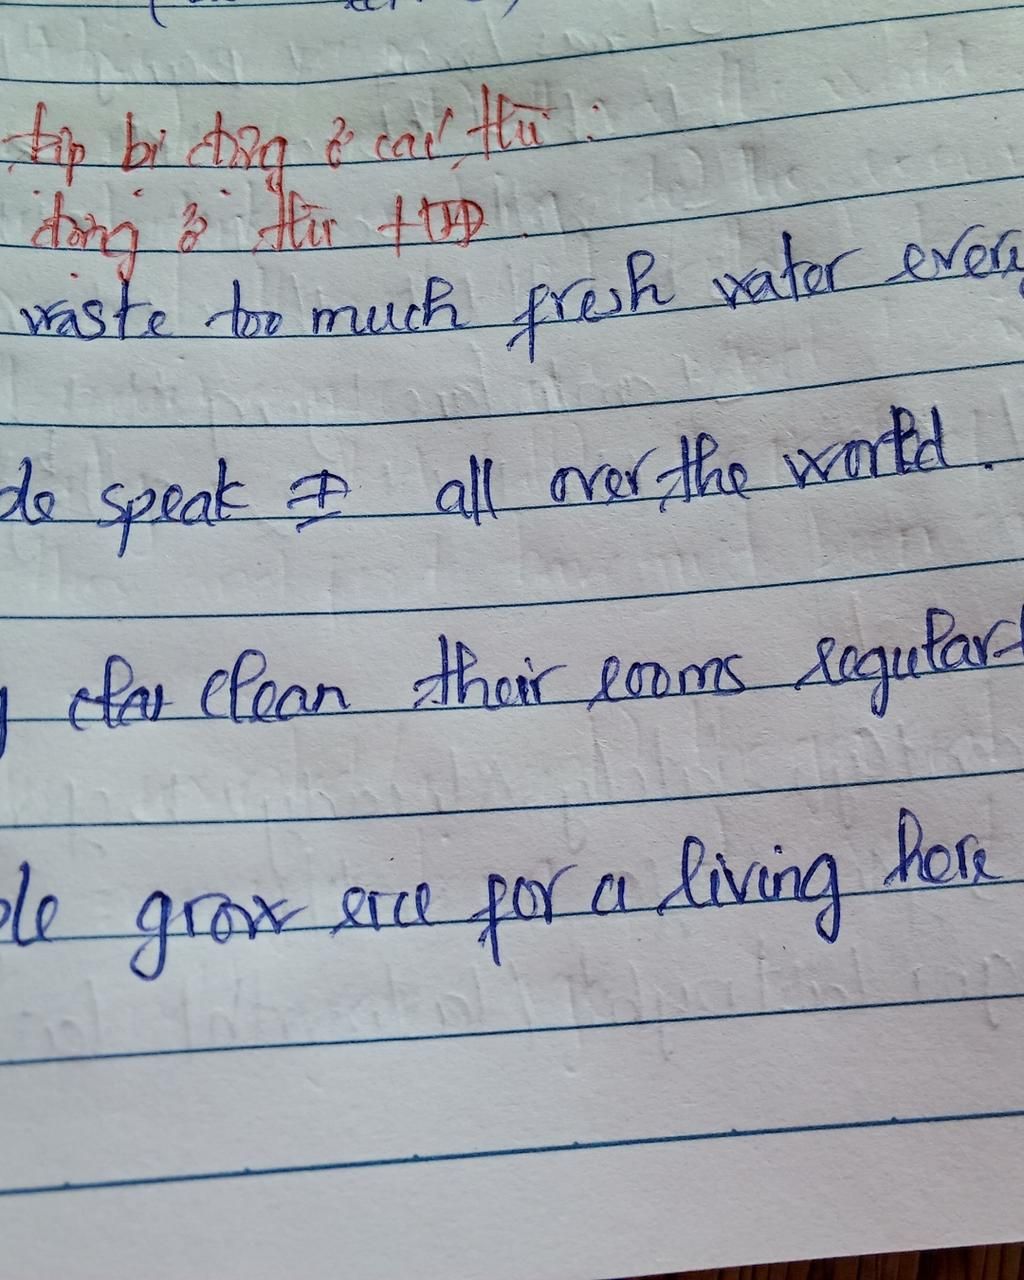 tập bị động ở các thì :
động ở thì HTĐ
waste too much fresh water every
ple speak all over the world .
clean their rooms regularl
ple grow rice for a living here